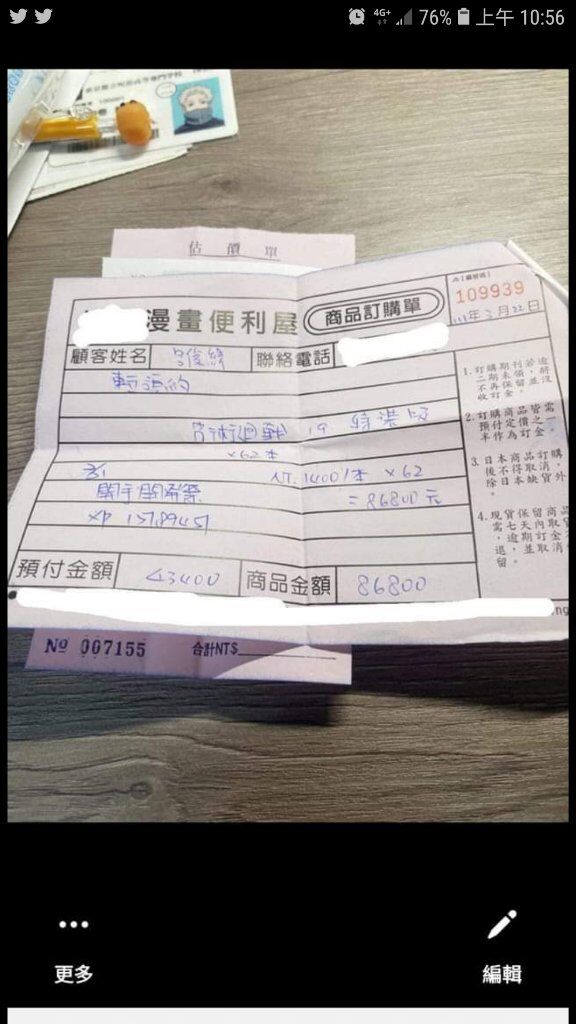 4G+ 76% 上午 10:56
估價單
漫畫便利屋 商品訂購單
【編號】
109939
111年3月22日
顧客姓名 聯絡電話
咒術迴戰 19 特裝版
×62本
1400/本 ×62
= 86800元
預付金額 43400 商品金額 86800
1.訂購期刊若逾
二期未領，將
不再保留並沒
收訂金。
2.訂購商品皆需
預付定價之一
半作為訂金。
3.日本商品訂購
後不得取消，
除日本缺貨外。
4.現貨保留商品
需七天內取貨
，逾期訂金不
退，並取消保
留。
№ 007155 合計NT$
更多 編輯